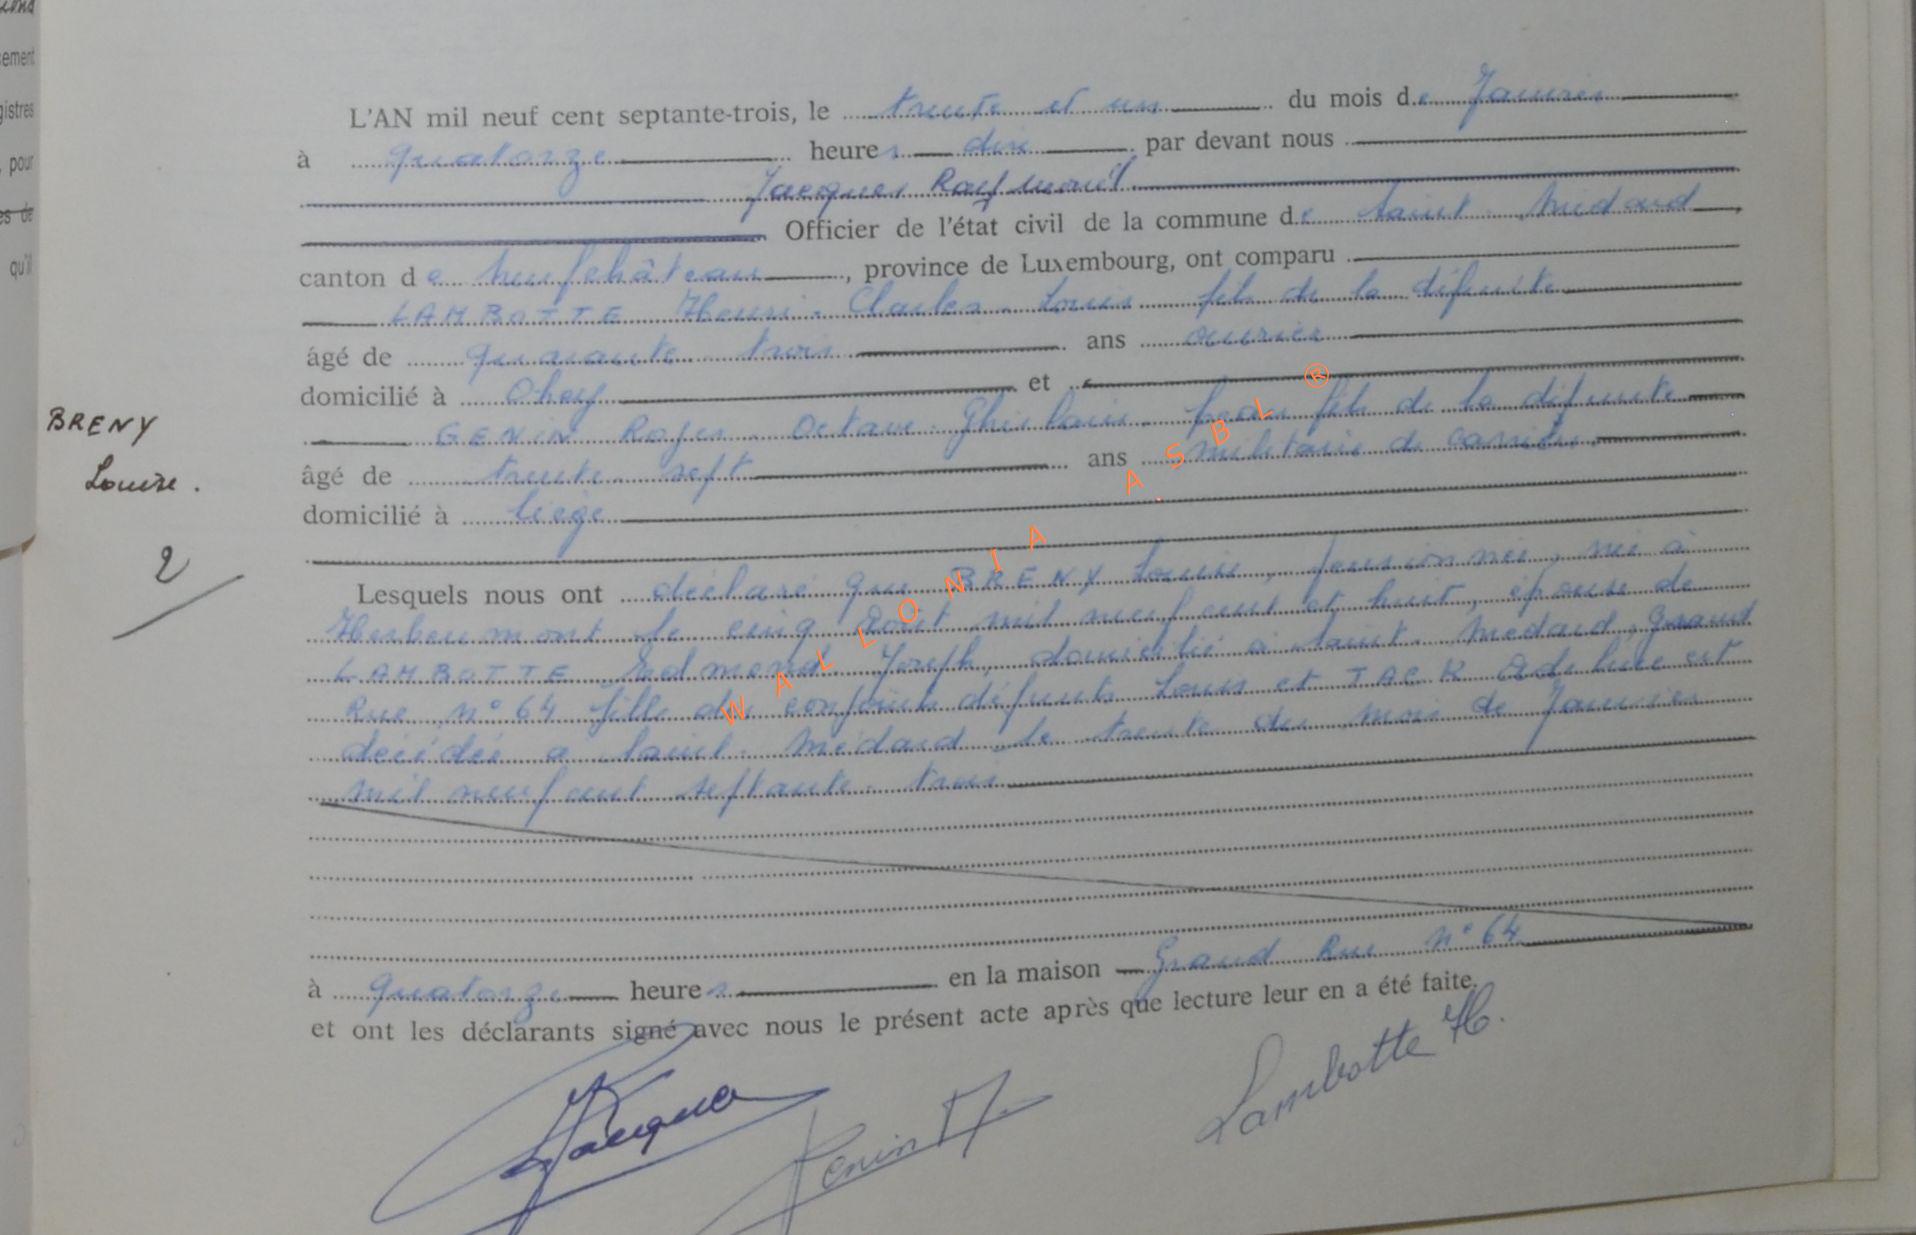 sement
gistres
, pour
es de
qu'il
BRENY
Louise.
2
L'AN mil neuf cent septante-trois, le trente et un du mois de Janvier
à quatorze heures dix par devant nous
Jacques Raymond
Officier de l'état civil de la commune de Saint-Médard,
canton de Neufchâteau, province de Luxembourg, ont comparu
LAMBOTTE Henri-Charles-Louis fils de la défunte
âgé de quarante-trois ans ouvrier
domicilié à Ohey et
GENIN Roger-Octave-Ghislain, beau-fils de la défunte
âgé de trente-sept ans militaire de carrière
domicilié à Liège
Lesquels nous ont déclaré que BRENY Louise, pensionnée, née à
Herbeumont le cinq Août mil neuf cent et huit, épouse de
LAMBOTTE Edmond-Joseph, domiciliée à Saint-Médard, Grand
Rue, n° 64 fille des conjoints défunts Louis et TACK Adeline est
décédée à Saint-Médard le trente du mois de Janvier
mil neuf cent septante-trois
à quatorze heures en la maison Grand Rue n° 64
et ont les déclarants signé avec nous le présent acte après que lecture leur en a été faite.
Jacques
Genin
Lambotte H.
WALLONIA A.S.B.L ®